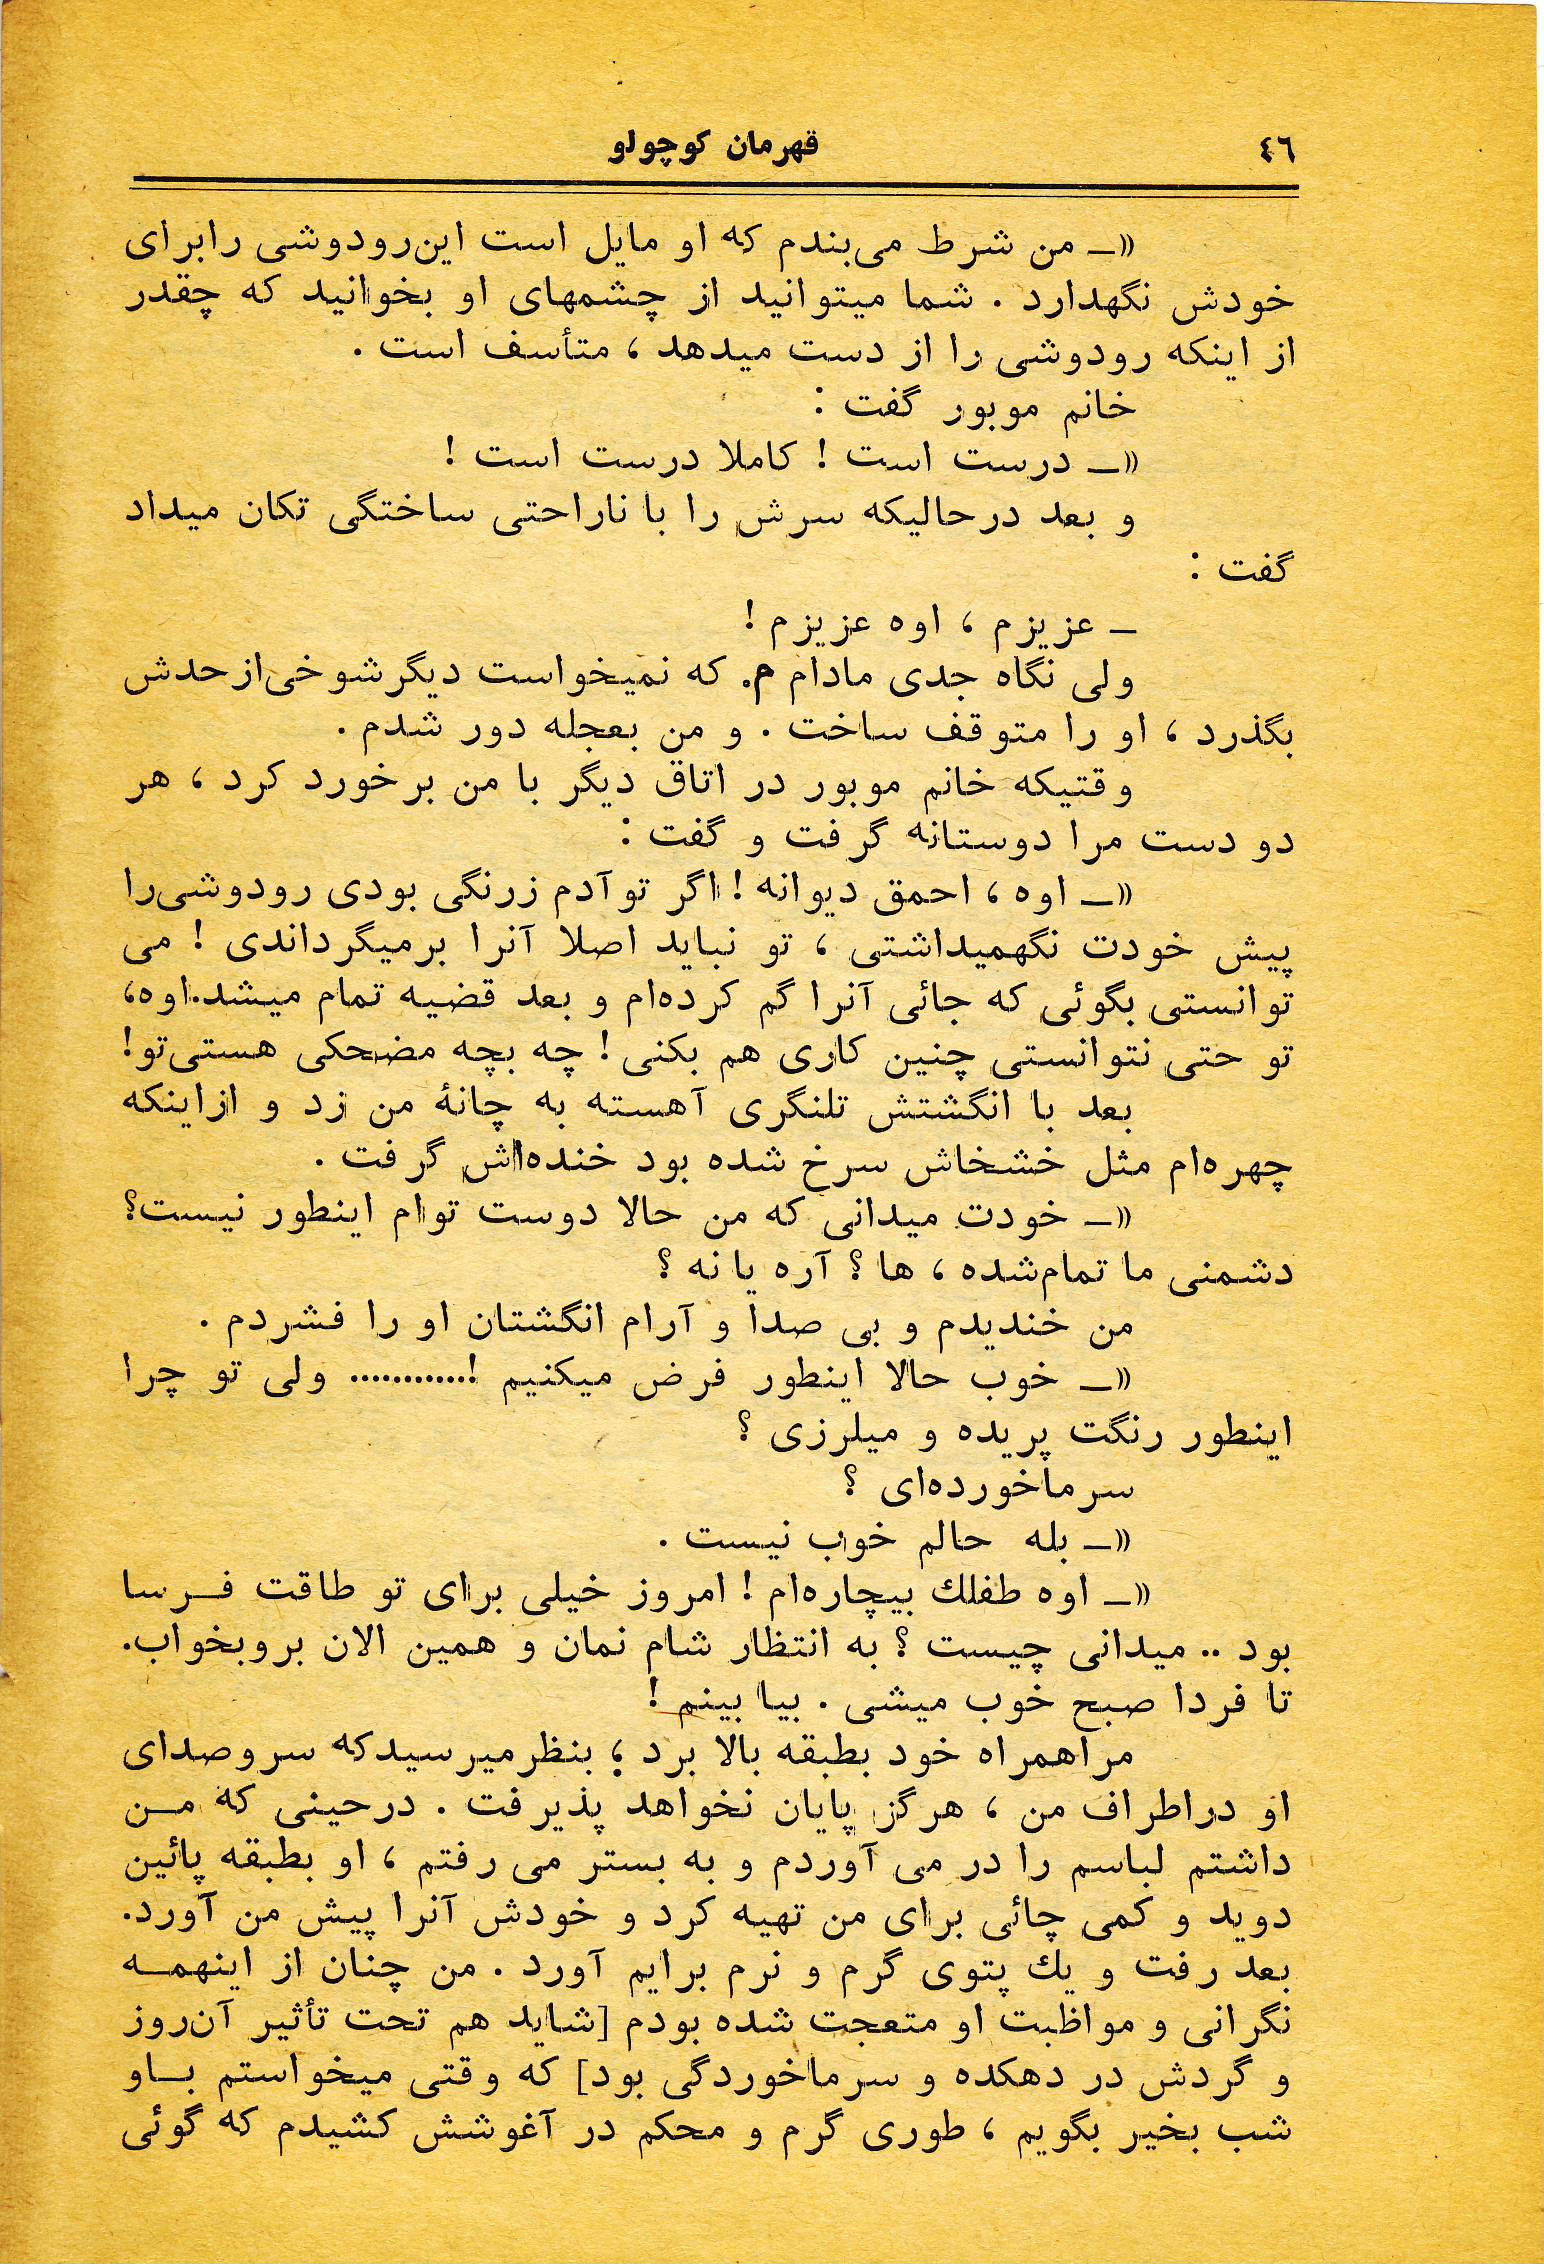 ٤٦
قهرمان کوچولو
«ـ من شرط می‌بندم که او مایل است این‌رودوشی رابرای
خودش نگهدارد . شما میتوانید از چشمهای او بخوانید که چقدر
از اینکه رودوشی را از دست میدهد ، متأسف است .
خانم موبور گفت :
«ـ درست است ! کاملا درست است !
و بعد درحالیکه سرش را با ناراحتی ساختگی تکان میداد
گفت :
ـ عزیزم ، اوه عزیزم !
ولی نگاه جدی مادام م. که نمیخواست دیگرشوخی‌ازحدش
بگذرد ، او را متوقف ساخت . و من بعجله دور شدم .
وقتیکه خانم موبور در اتاق دیگر با من برخورد کرد ، هر
دو دست مرا دوستانه گرفت و گفت :
«ـ اوه ، احمق دیوانه ! اگر توآدم زرنگی بودی رودوشی‌را
پیش خودت نگهمیداشتی ، تو نباید اصلا آنرا برمیگرداندی ! می
توانستی بگوئی که جائی آنرا گم کرده‌ام و بعد قضیه تمام میشد. اوه،
تو حتی نتوانستی چنین کاری هم بکنی ! چه بچه مضحکی هستی‌تو!
بعد با انگشتش تلنگری آهسته به چانهٔ من زد و ازاینکه
چهره‌ام مثل خشخاش سرخ شده بود خنده‌اش گرفت .
«ـ خودت میدانی که من حالا دوست توام اینطور نیست؟
دشمنی ما تمام‌شده ، ها ؟ آره یا نه ؟
من خندیدم و بی صدا و آرام انگشتان او را فشردم .
«ـ خوب حالا اینطور فرض میکنیم !............ ولی تو چرا
اینطور رنگت پریده و میلرزی ؟
سرماخورده‌ای ؟
«ـ بله حالم خوب نیست .
«ـ اوه طفلك بیچاره‌ام ! امروز خیلی برای تو طاقت فـرسا
بود .. میدانی چیست ؟ به انتظار شام نمان و همین الان بروبخواب.
تا فردا صبح خوب میشی . بیا بینم !
مراهمراه خود بطبقه بالا برد ؛ بنظرمیرسیدکه سروصدای
او دراطراف من ، هرگز پایان نخواهد پذیرفت . درحینی که مـن
داشتم لباسم را در می آوردم و به بستر می رفتم ، او بطبقه پائین
دوید و کمی چائی برای من تهیه کرد و خودش آنرا پیش من آورد.
بعد رفت و یك پتوی گرم و نرم برایم آورد . من چنان از اینهمـه
نگرانی و مواظبت او متعجت شده بودم [شاید هم تحت تأثیر آن‌روز
و گردش در دهکده و سرماخوردگی بود] که وقتی میخواستم بـاو
شب بخیر بگویم ، طوری گرم و محکم در آغوشش کشیدم که گوئی